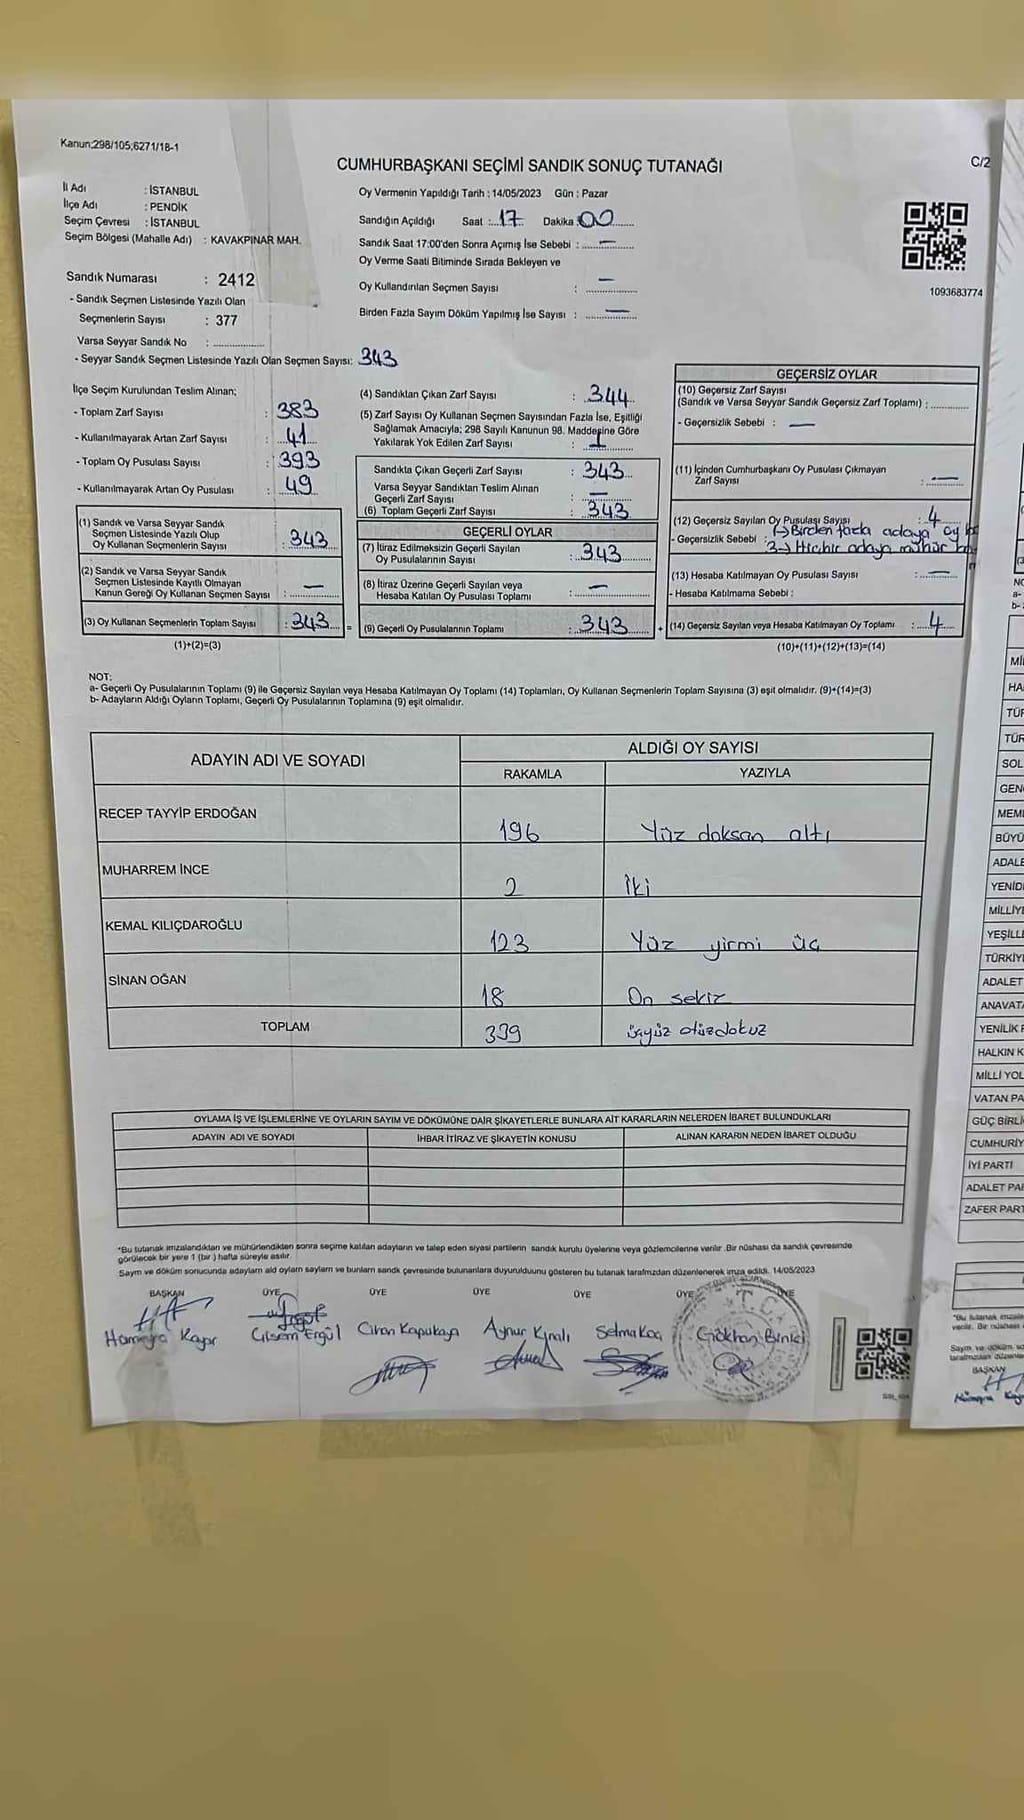 Kanun;298/105;6271/18-1
CUMHURBAŞKANI SEÇİMİ SANDIK SONUÇ TUTANAĞI
C/2
İl Adı : İSTANBUL
İlçe Adı : PENDİK
Seçim Çevresi : İSTANBUL
Seçim Bölgesi (Mahalle Adı) : KAVAKPINAR MAH.
Oy Vermenin Yapıldığı Tarih : 14/05/2023 Gün : Pazar
Sandığın Açıldığı Saat : 17 Dakika : 00
Sandık Saat 17:00'den Sonra Açımış İse Sebebi : —
Oy Verme Saati Bitiminde Sırada Bekleyen ve
Oy Kullandırılan Seçmen Sayısı : —
Birden Fazla Sayım Döküm Yapılmış İse Sayısı : —
1093683774
Sandık Numarası : 2412
- Sandık Seçmen Listesinde Yazılı Olan
Seçmenlerin Sayısı : 377
Varsa Seyyar Sandık No :
- Seyyar Sandık Seçmen Listesinde Yazılı Olan Seçmen Sayısı: 343
İlçe Seçim Kurulundan Teslim Alınan;
- Toplam Zarf Sayısı : 383
- Kullanılmayarak Artan Zarf Sayısı : 41
- Toplam Oy Pusulası Sayısı : 393
- Kullanılmayarak Artan Oy Pusulası : 49
(1) Sandık ve Varsa Seyyar Sandık
Seçmen Listesinde Yazılı Olup
Oy Kullanan Seçmenlerin Sayısı : 343
(2) Sandık ve Varsa Seyyar Sandık
Seçmen Listesinde Kayıtlı Olmayan
Kanun Gereği Oy Kullanan Seçmen Sayısı : —
(3) Oy Kullanan Seçmenlerin Toplam Sayısı : 343 =
(1)+(2)=(3)
(4) Sandıktan Çıkan Zarf Sayısı : 344
(5) Zarf Sayısı Oy Kullanan Seçmen Sayısından Fazla İse, Eşitliği
Sağlamak Amacıyla; 298 Sayılı Kanunun 98. Maddesine Göre
Yakılarak Yok Edilen Zarf Sayısı : 1
Sandıkta Çıkan Geçerli Zarf Sayısı : 343
Varsa Seyyar Sandıktan Teslim Alınan
Geçerli Zarf Sayısı : —
(6) Toplam Geçerli Zarf Sayısı : 343
GEÇERLİ OYLAR
(7) İtiraz Edilmeksizin Geçerli Sayılan
Oy Pusulalarının Sayısı : 343
(8) İtiraz Üzerine Geçerli Sayılan veya
Hesaba Katılan Oy Pusulası Toplamı : —
(9) Geçerli Oy Pusulalarının Toplamı : 343 +
GEÇERSİZ OYLAR
(10) Geçersiz Zarf Sayısı
(Sandık ve Varsa Seyyar Sandık Geçersiz Zarf Toplamı) :
- Geçersizlik Sebebi : —
(11) İçinden Cumhurbaşkanı Oy Pusulası Çıkmayan
Zarf Sayısı : —
(12) Geçersiz Sayılan Oy Pusulası Sayısı : 4
- Geçersizlik Sebebi : 1-) Birden fazla adaya oy
3-) Hiçbir adaya mühür
(13) Hesaba Katılmayan Oy Pusulası Sayısı : —
- Hesaba Katılmama Sebebi :
(14) Geçersiz Sayılan veya Hesaba Katılmayan Oy Toplamı : 4
(10)+(11)+(12)+(13)=(14)
NOT:
a- Geçerli Oy Pusulalarının Toplamı (9) ile Geçersiz Sayılan veya Hesaba Katılmayan Oy Toplamı (14) Toplamları, Oy Kullanan Seçmenlerin Toplam Sayısına (3) eşit olmalıdır. (9)+(14)=(3)
b- Adayların Aldığı Oyların Toplamı, Geçerli Oy Pusulalarının Toplamına (9) eşit olmalıdır.
ADAYIN ADI VE SOYADI
ALDIĞI OY SAYISI
RAKAMLA YAZIYLA
RECEP TAYYİP ERDOĞAN 196 Yüz doksan altı
MUHARREM İNCE 2 İki
KEMAL KILIÇDAROĞLU 123 Yüz yirmi üç
SİNAN OĞAN 18 On sekiz
TOPLAM 339 üçyüz otuzdokuz
OYLAMA İŞ VE İŞLEMLERİNE VE OYLARIN SAYIM VE DÖKÜMÜNE DAİR ŞİKAYETLERLE BUNLARA AİT KARARLARIN NELERDEN İBARET BULUNDUKLARI
ADAYIN ADI VE SOYADI İHBAR İTİRAZ VE ŞİKAYETİN KONUSU ALINAN KARARIN NEDEN İBARET OLDUĞU
*Bu tutanak imzalandıktan ve mühürlendikten sonra seçime katılan adayların ve talep eden siyasi partilerin sandık kurulu üyelerine veya gözlemcilerine verilir. Bir nüshası da sandık çevresinde
görülecek bir yere 1 (bir ) hafta süreyle asılır.
Sayım ve döküm sonucunda adayların ald oyların sayların ve bunların sandk çevresinde bulunanlara duyurulduunu gösteren bu tutanak tarafımızdan düzenlenerek imza edildi. 14/05/2023
BAŞKAN ÜYE ÜYE ÜYE ÜYE ÜYE ÜYE
Gilsem Ergül Cihan Kapukaya Aynur Kınalı Selma Koa Gökhan Binici
T.C.
MİL
HA
TÜR
TÜR
SOL
GEN
MEM
BÜYÜ
ADALE
YENİD
MİLLİY
YEŞİLLE
TÜRKİYE
ADALET
ANAVATA
YENİLİK F
HALKIN K
MİLLİ YOL
VATAN PA
GÜÇ BİRLİ
CUMHURİY
İYİ PARTİ
ADALET PAR
ZAFER PART
BAŞKAN